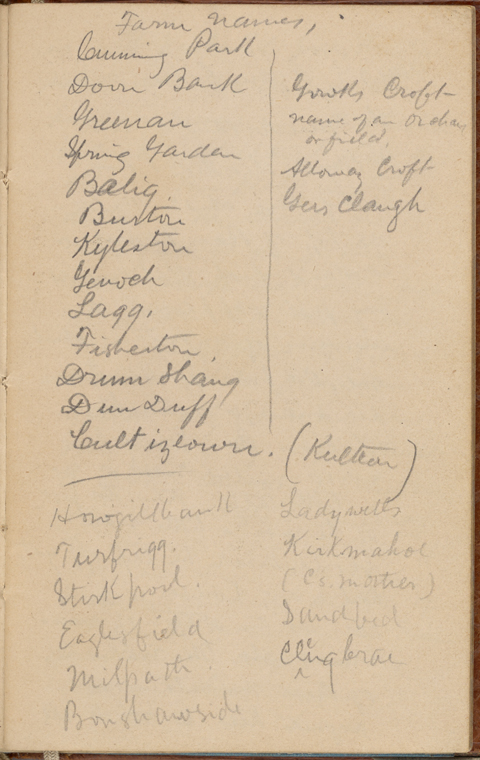 Farm names,
Cunning Park
Doon Bank
Greenan
Spring Garden
Balig
Burton
Kyleston
Genoch
Lagg.
Fisherton
Drum Shang
Dun Duff
Cultizeown. (Kulteon)
Gowks Croft
name of an orchard
or field.
Alloway Croft
Gers Claugh
Howgillbank
Turfrigg.
Stirkpool.
Eaglesfield
Milpath
Bonshawside
Ladywells
Kirkmahoe
(Cs. mother)
Sandbed
Clugbrae